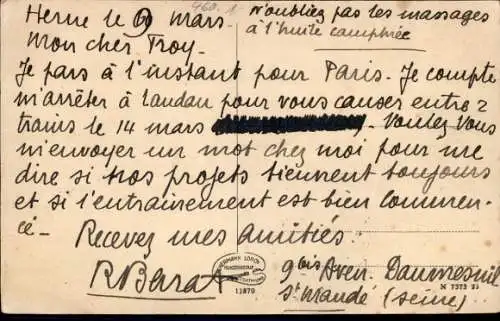 Herne le 9 mars
460. 1
N'oubliez pas les massages
à l'huile camphrée
Mon cher Troy.
Je pars à l'instant pour Paris. Je compte
m'arrêter à Landau pour vous causer entre 2
trains le 14 mars. Voulez vous
m'envoyer un mot chez moi pour me
dire si nos projets tiennent toujours
et si l'entrainement est bien commen-
cé -
Recevez mes amitiés.
R Berrat
9 bis Aven. Daumesnil
St Mandé (Seine)
HERMANN LORCH
KUNSTANSTALT
DORTMUND
12870
N 7373 21